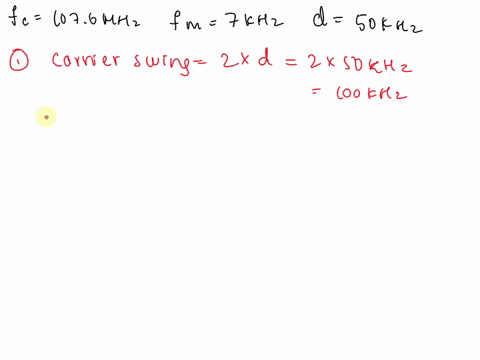 fc = 107.6 MHz fm = 7 kHz d = 50 kHz
① carrier swing = 2 × d = 2 × 50 kHz
= 100 kHz